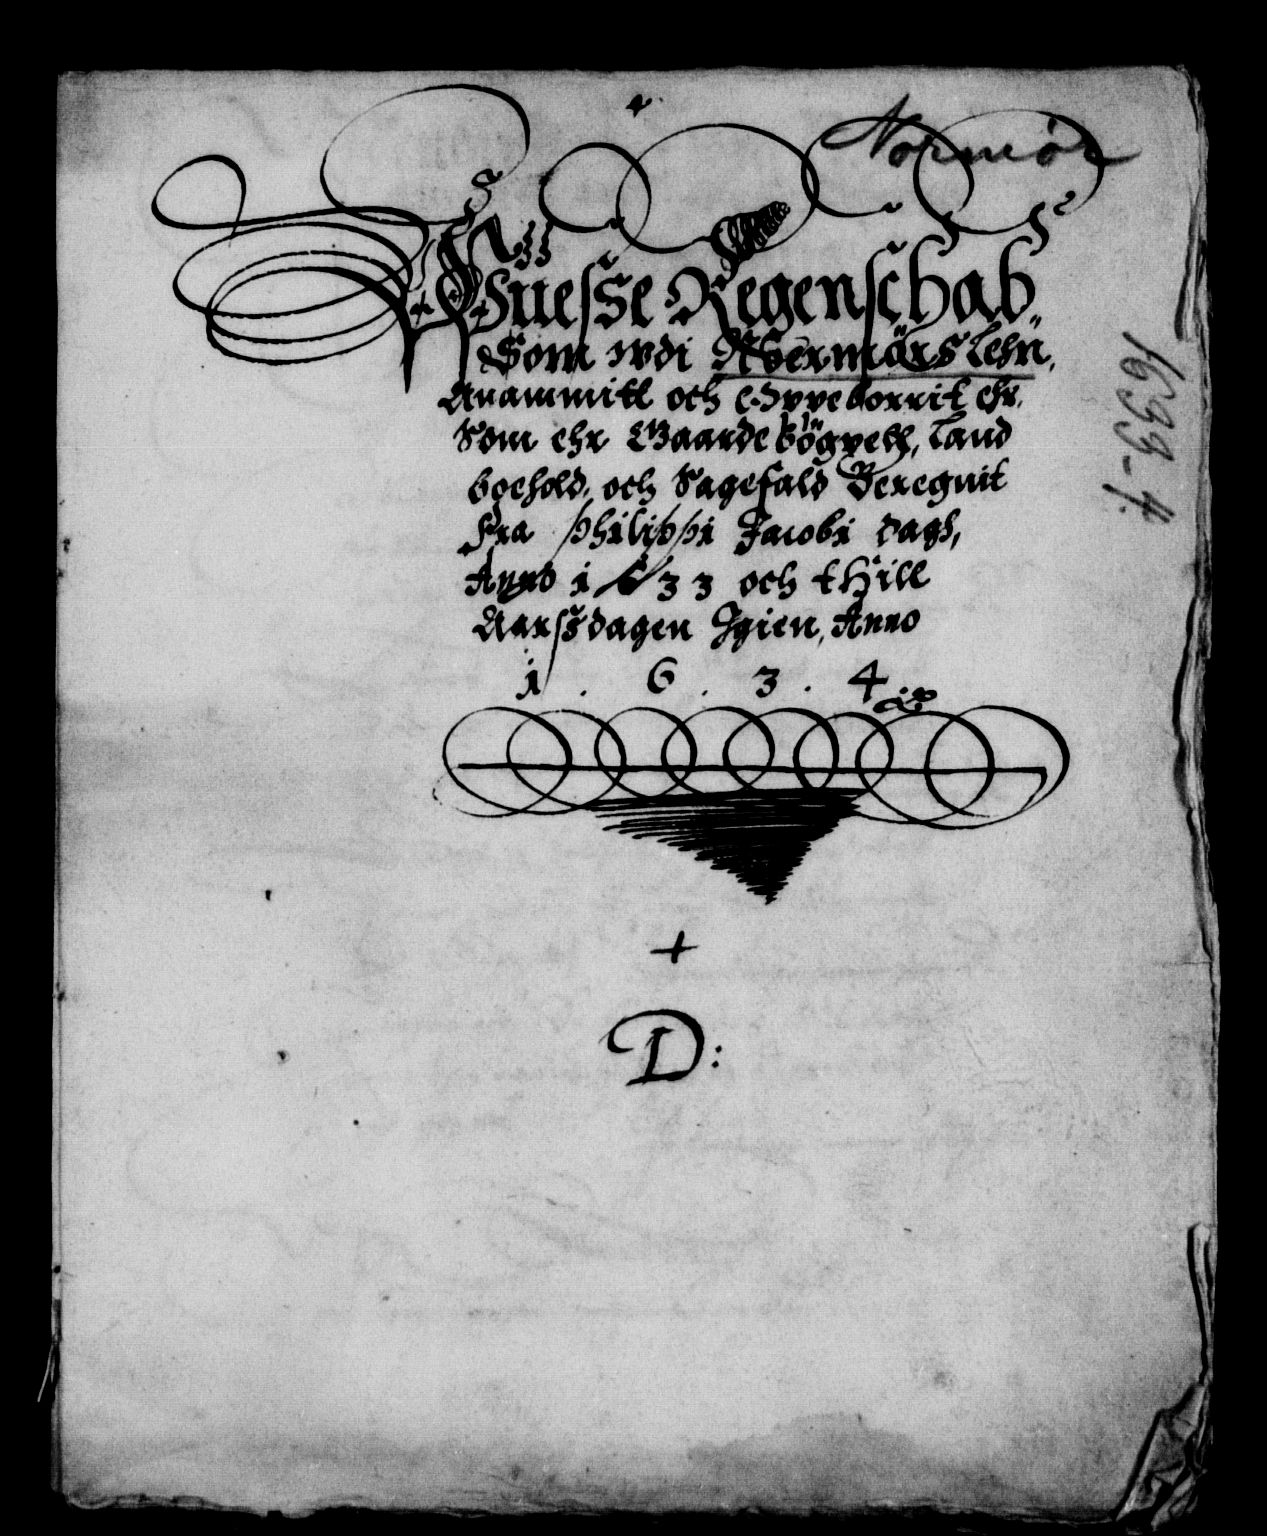 Normör
Wüesse Regenschab
Som wdi Nörmörs Lehn,
Anammitt och Oppeborrit ehr,
Som ehr Gaarde bögxell, Land
boehold, och Sagefald Beregnit
Fra Philippi Jacobi dags,
Anno 1633 och thill
Aarssdagen Igien, Anno
1 . 6 . 3 . 4
D:
1633-4.